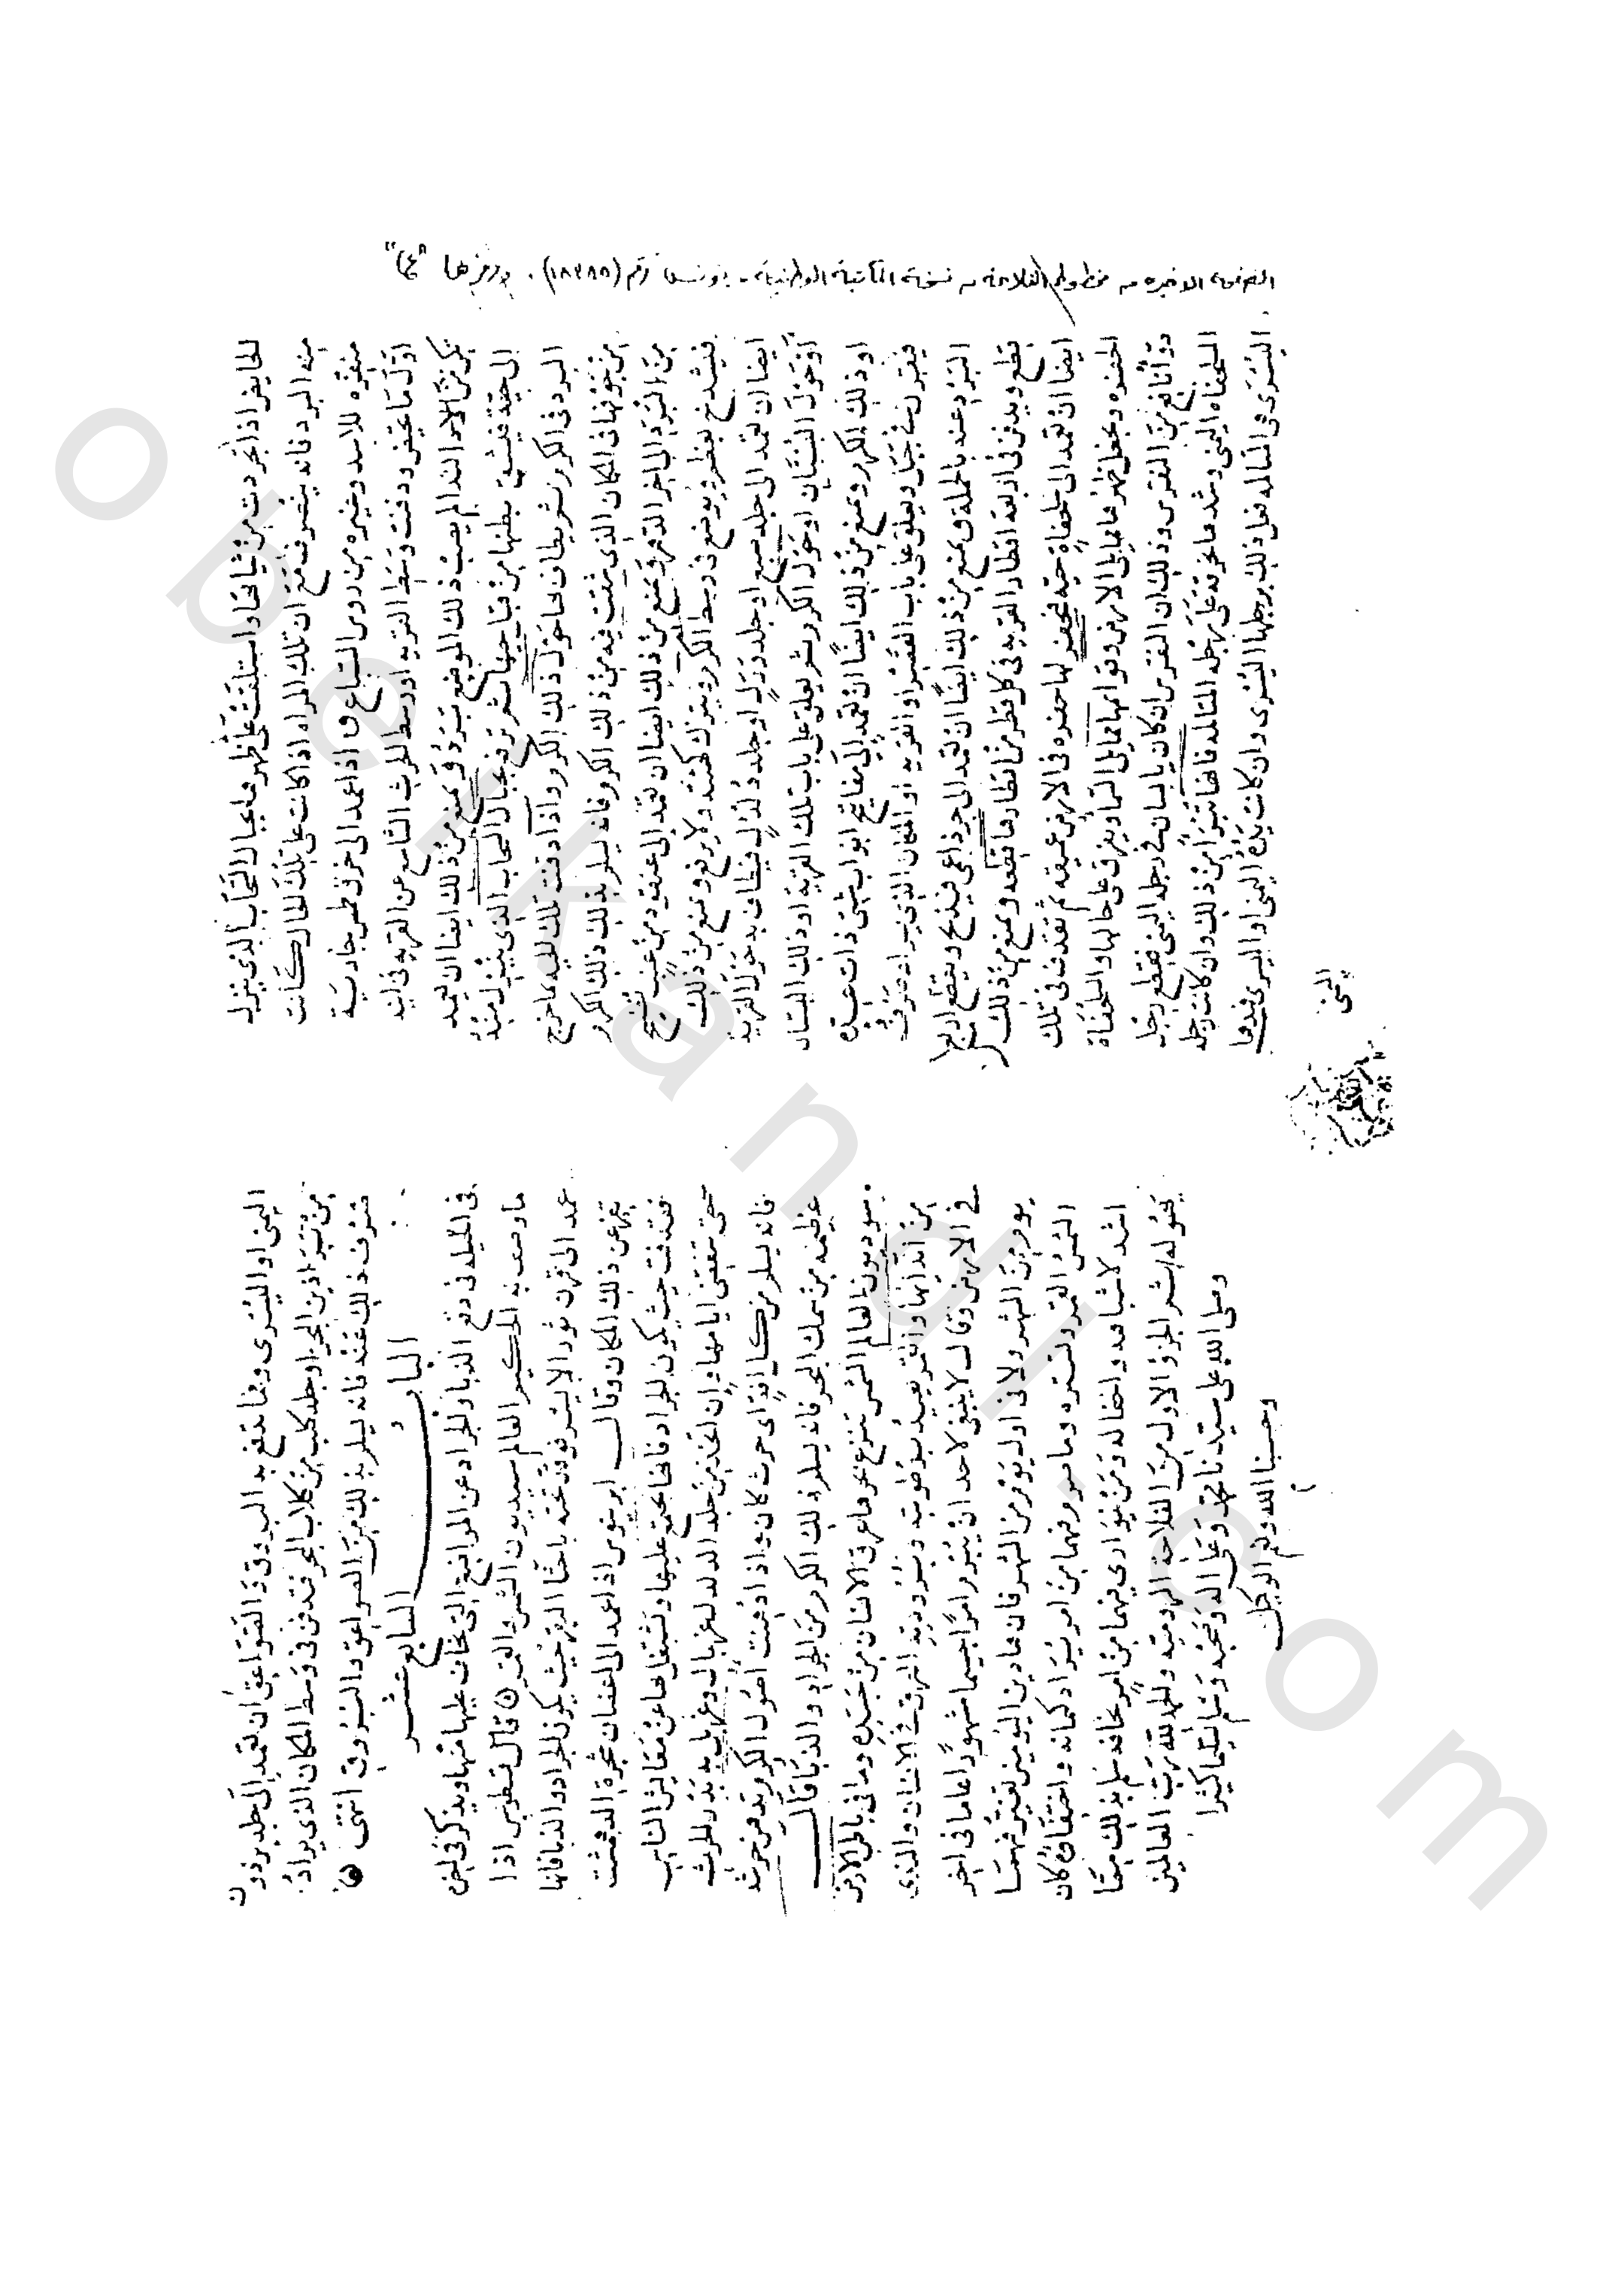 الصفحة الاخيرة من مخطوط الفلاحة من نسخة المكتبة الوطنية - تونس رقم (١٨٤٨٨). ورمزها "تم"
الحايض اذا تجردت من ثيابها واستلقت على ظهرها بحيال السحاب الذي ينزل
منه البرد فانه ينصرف مع ان تلك المراه اذا كانت على تلك الحال كانت
منفرة للاسد وغيره من روس السباع واذا عمد الى خرق طمس جاريه
اول ما تحيض ودفنت وسط القريه او وسط الحرث الشاسع عن القريه في ليد
ذلك الموضع برد ويمنع من ذلك ايضا ان تعمد
الى حية فيشق بطنها من قباحيها ثم ترفع بحيال السحاب الذي ينزل منه
البرد في الكرم ثم يطاف بها حول ذلك الكرم واذا دفنت تلك الحيه بما خرج
من جوفها في المكان الذي شقت فيه من ذلك الكرم فانه يسلم بذلك ذلك الكرم
من البرد الى اخر الدهر ويمنع من ذلك ايضا ان تعمد الى عنقود من عنب
فيشدخ بعظم ويوضع في وسط الكرم ويترك كهيئته ولا يرفع ويمنع من ذلك
ايضا ان تعمد الى جلد ضبع او جلد ورل او جلد دلدل فيطاف به حول القرية
او حول البستان او حول الكرم ثم يعلق على باب تلك القرية او ذلك البستان
او ذلك الكرم ويمنع من ذلك ايضا ان تعمد الى مفاتيح ابواب شتى ذات عدة
فيقرن في حبل ويعلق على باب القصر او القريه او المكان الذي يراد صرف
البرد عنه بالجملة ويمنع من ذلك ايضا ان تعمد الى جرذ اعمى فيذبح ويقطع اربع
قطع ويدفن في اربعة اقطار القريه في كل قطر من اقطارها قطعه ويمنع من ذلك
ايضا ان تعمد الى سلحفاة حية فيحفر لها حفره في الارض عميقه ثم تقذف في تلك
الحفره ويجعل ظهرها مما يلي الارض وقوايمها مما يلي السما ويهرق على حالها والسلحفاة
دوآ نافع من النقرس وذلك ان النقرس ان كان بانسان في رجله اليمنى فقطع رجل
السلحفاه اليمنى وشدها بخرقة على رجله المتألمه فانها تبرا من ذلك وان كانت رجله
اليسرى هي المتالمه فعل ذلك برجلها اليسرى وان كانت يده اليمنى او اليسرى فيدها
اليمنى
اليمنى او اليسرى ومما تدفع به البروق والصواعق ان تعمد الى جلد برذون
من البحر او جلد كلب من كلاب البحر فتدفن في وسط المكان الذي يراد
صرف ذلك عنه فانه يسلم بذلك من الصواعق والبروق انتهى
الباب السابع عشر
في الحيله في دفع الدبا والجراد عن المواضع التي يخاف عليها منها ويذكر في اخره
ما وصف به الحكيم العالم سمديون الشمس والقمر قال قسطوس اذا
عمد الى قرن ثور الايسر فوقد تحته باخثا البقر حيث يكون الجراد والدبا فانها
تفر عن ذلك المكان وقال ابرينوس اذا عمد الى اغصان شجرة
فقذفت حيث يكون الجراد فانها تجتمع عليها وتشتغل بها عن معايش الناس
حتى تنقضي ايامها وان اتخذ من جلد الدلدل غربال وغربل به بذر الحرث
فانه يسلم من كل افة اي حرث كان واذا دهنت اصول الكرم بدهن
عظيمه من سمك البحر فانه يسلم ذلك الكرم من الجراد والدبا قال
سوديون العالم الشمس تنزع بحرها عرق الانسان من جسده وما في باطن الارض
من انديتها والقمر يعيد برطوبته وبروديته العرق في الانسان والندى
في الارض وقال لا ينبغي لاحد ان يبرم امرا جسيما مشهودا عاما في اخر
يوم من الشهر ولا في اول يوم من الشهر فان هاذين اليومين تغير فيهما
الشمس القمر وتستره وما سوى فيهما من امر يراد كتمانه واختفاؤه كان
اشد لاشباهه واخفا له ومن يتوارى فيهما من امر يخافه سلم بذلك مما
يحوله تم الجزؤ الاول من الفلاحة الرومية والحمد لله رب العالمين
وصلى الله على سيدنا محمد وعلى اله وصحبه وسلم تسليما كثيرا
وحسبنا الله ونعم الوكيل
م
operkandl.com